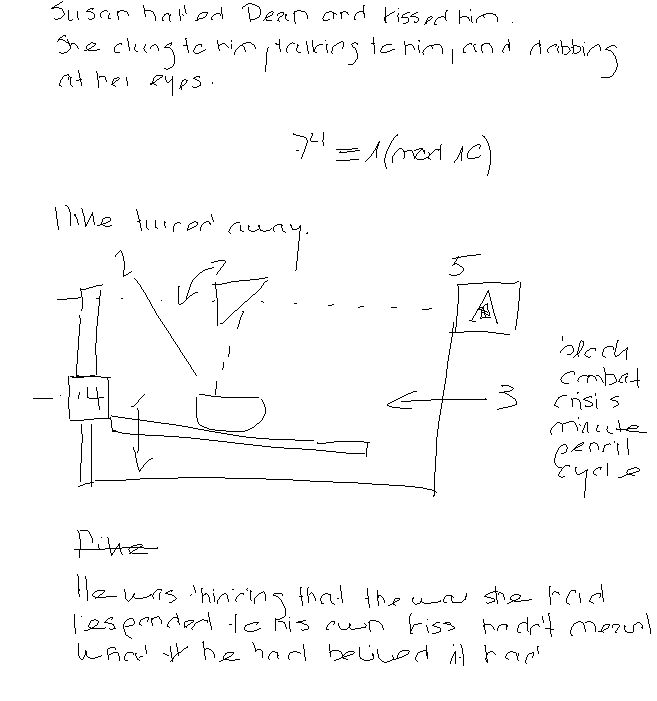 Susan hailed Dean and kissed him.
She clung to him, talking to him, and dabbing
at her eyes.
7⁴ ≡ 1 (mod 10)
Mike turned away.
2
5
A
4
3
block
combat
crisis
minute
pencil
cycle
He was thinking that the way she had
responded to his own kiss hadn't meant
what he had belived it had